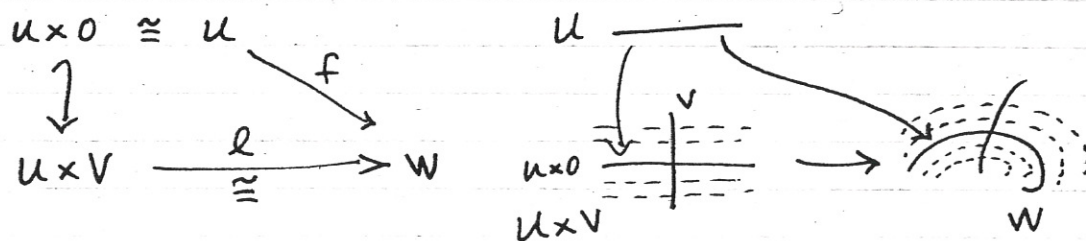 u×0 ≅ u
f
u×V ℓ ≅ W
u
V
u×0
u×V
W